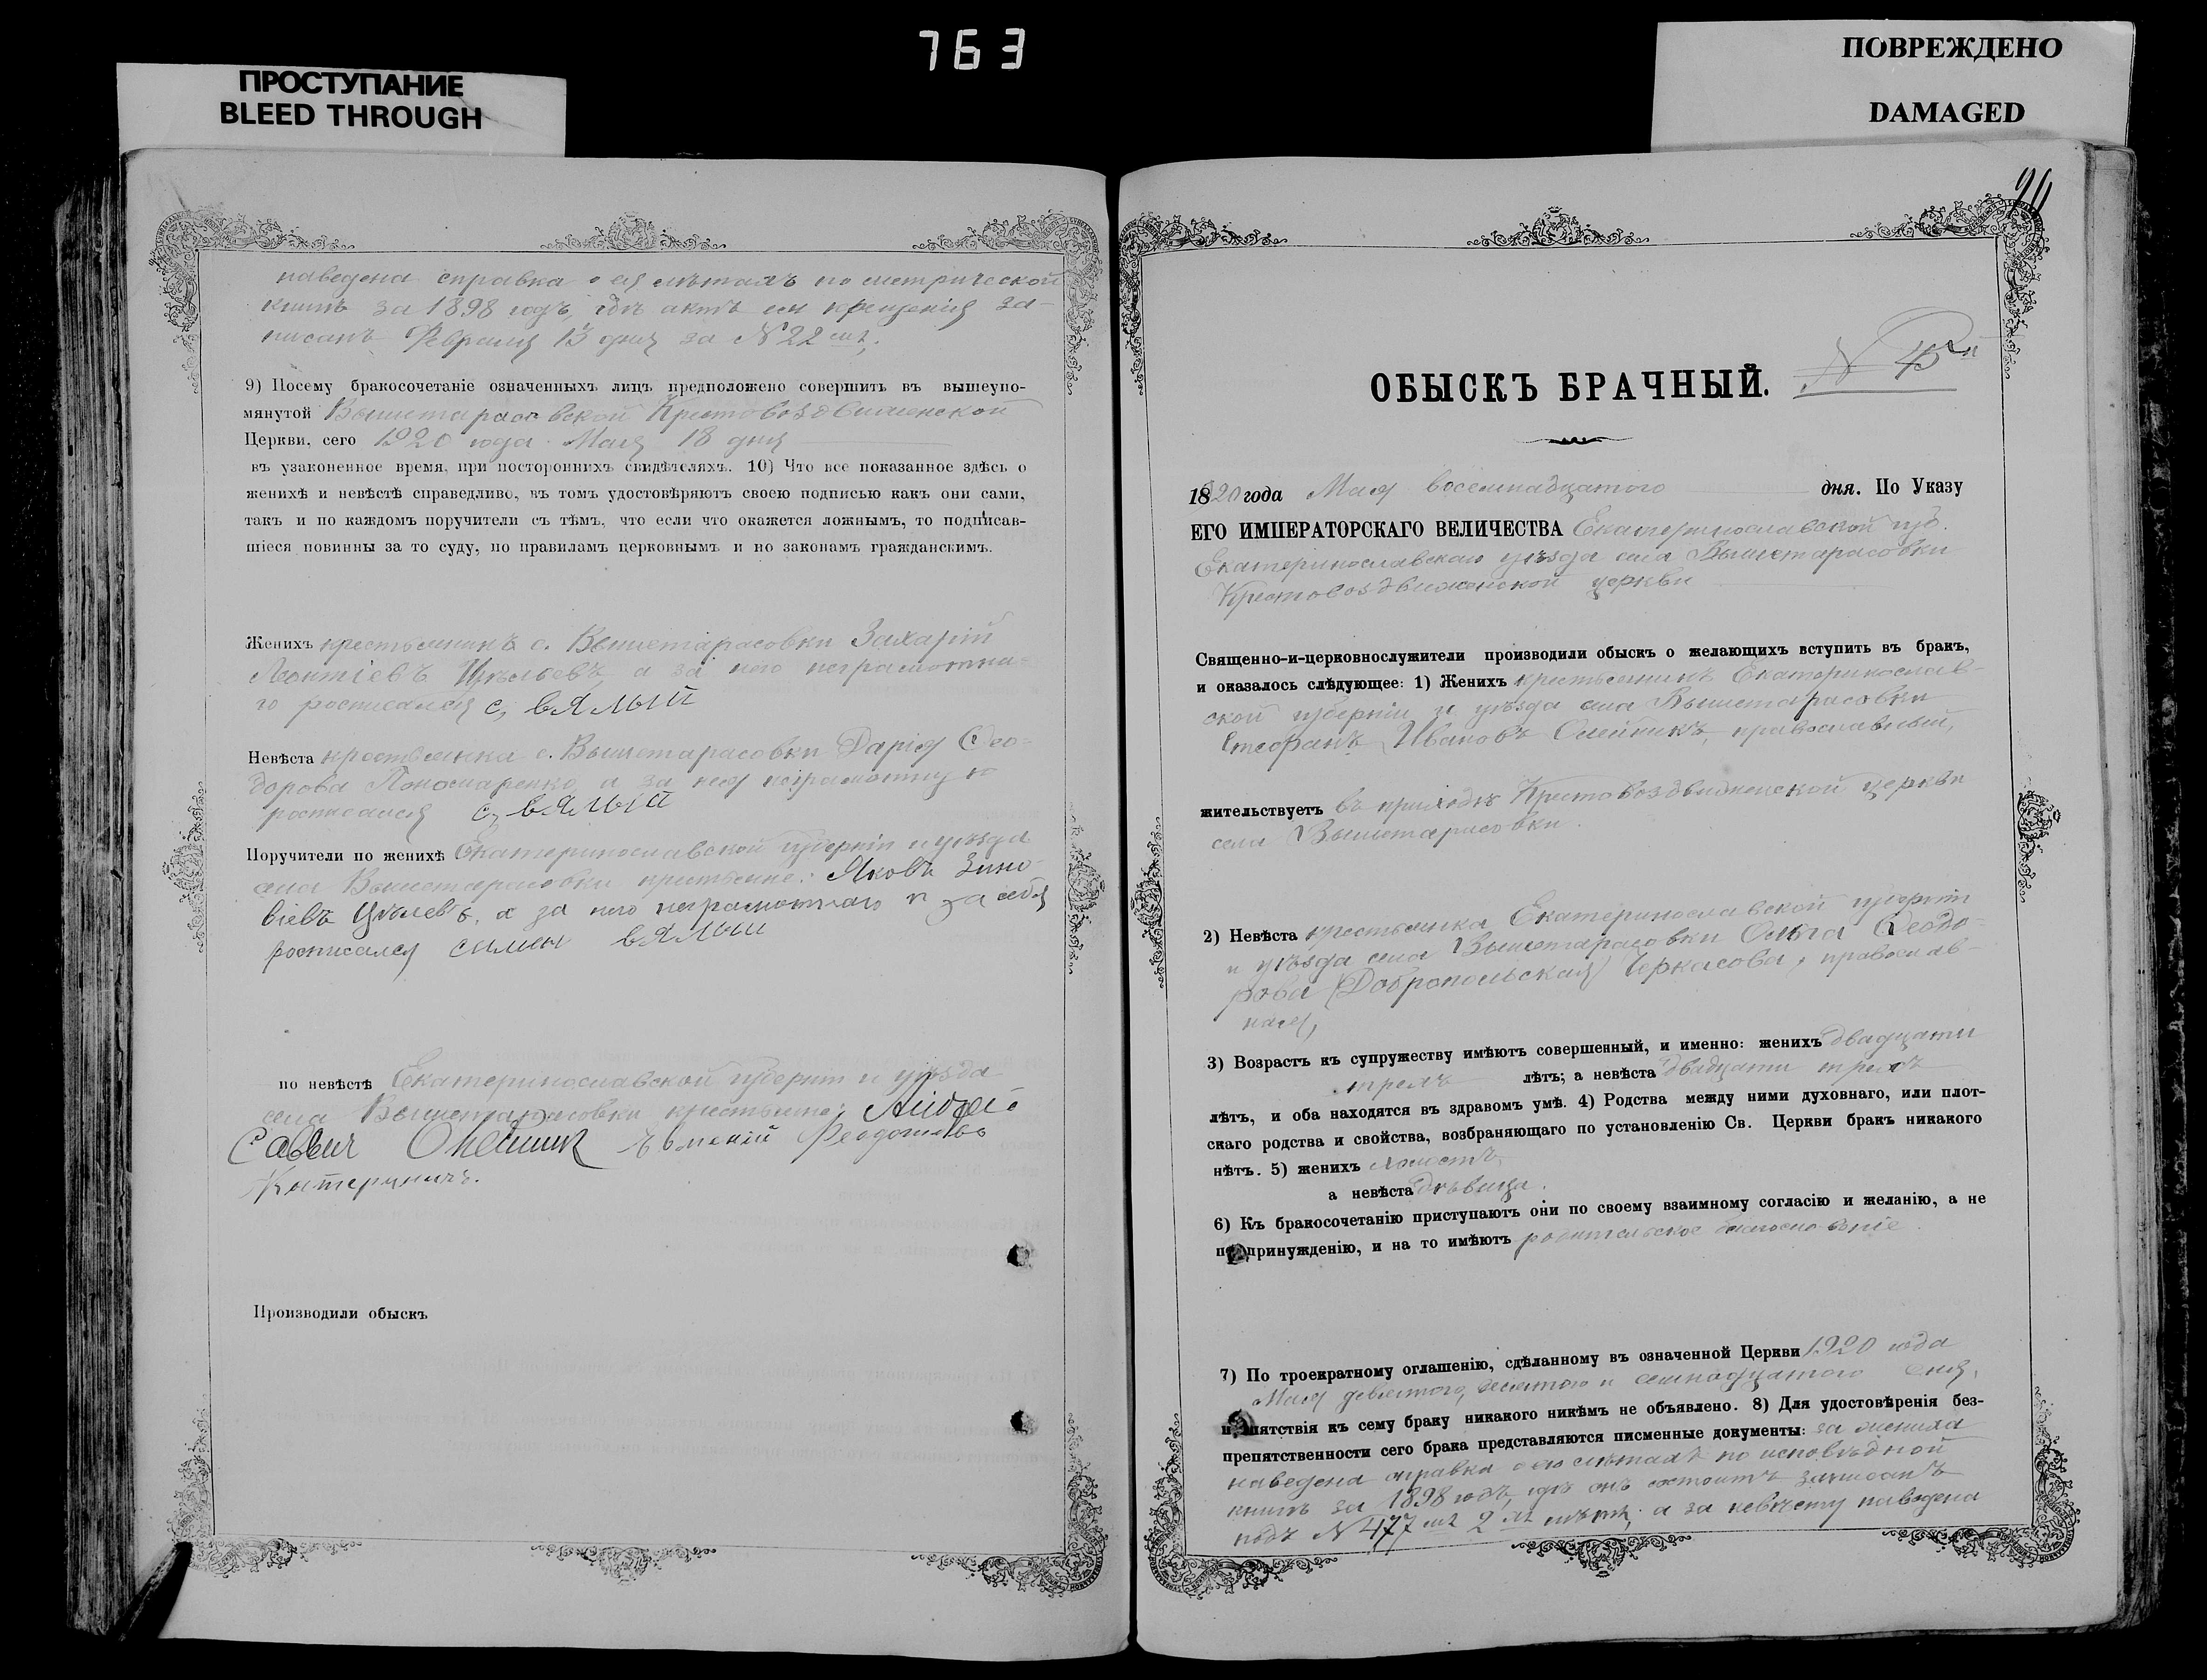 763
ПРОСТУПАНИЕ
BLEED THROUGH
ПОВРЕЖДЕНО
DAMAGED
наведена справка о ея лѣтахъ по метрической
книгѣ за 1898 годъ, гдѣ актъ ея крещенія за-
писанъ Февраля 13 дня за № 22 мъ.
9) Посему бракосочетаніе означенныхъ лицъ предположено совершить въ вышеупо-
мянутой Вышетарасовской Крестовоздвиженской
Церкви, сего 1920 года Мая 18 дня
въ узаконенное время, при постороннихъ свидѣтеляхъ. 10) Что все показанное здѣсь о
женихѣ и невѣстѣ справедливо, въ томъ удостовѣряютъ своею подписью какъ они сами,
такъ и по каждомъ поручители съ тѣмъ, что если что окажется ложнымъ, то подписав-
шіеся повинны за то суду, по правиламъ церковнымъ и по законамъ гражданскимъ.
Женихъ крестьянинъ с. Вышетарасовки Захарій
Леонтіевъ а за него неграмотна-
го росписался С, вялый
Невѣста крестьянка с. Вышетарасовки Дарія Ѳео-
дорова Пономаренко а за нея неграмотную
росписался С, вялый
Поручители по женихѣ Екатеринославской губерніи и уѣзда
села Вышетарасовки крестьяне: Яковъ Зино-
віевъ а за него неграмотнаго и за себя
росписался вялый
по невѣстѣ Екатеринославской губерніи и уѣзда
села Вышетарасовки крестьяне: Андрей
Савич Олейник
Производили обыскъ
ОБЫСКЪ БРАЧНЫЙ.
1920 года Мая восемнадцатого дня. По Указу
ЕГО ИМПЕРАТОРСКАГО ВЕЛИЧЕСТВА Екатеринославской губ.
Екатеринославскаго уѣзда села Вышетарасовки
Крестовоздвиженской церкви
Священно-и-церковнослужители производили обыскъ о желающихъ вступить въ бракъ,
и оказалось слѣдующее: 1) Женихъ крестьянинъ Екатеринослав-
ской губерніи и уѣзда села Вышетарасовки
Стефанъ Ивановъ Олейникъ, православный,
жительствуетъ въ приходѣ Крестовоздвиженской церкви
села Вышетарасовки.
2) Невѣста крестьянка Екатеринославской губерніи
и уѣзда села Вышетарасовки Ольга Ѳеодо-
рова (Добропольская) Черкасова, православ-
ная,
3) Возрастъ къ супружеству имѣютъ совершенный, и именно: женихъ двадцати
трехъ лѣтъ; а невѣста двадцати трехъ
лѣтъ, и оба находятся въ здравомъ умѣ. 4) Родства между ними духовнаго, или плот-
скаго родства и свойства, возбраняющаго по установленію Св. Церкви бракъ никакого
нѣтъ. 5) женихъ холостъ,
а невѣста дѣвица.
6) Къ бракосочетанію приступаютъ они по своему взаимному согласію и желанію, а не
по принужденію, и на то имѣютъ родительское благословеніе.
7) По троекратному оглашенію, сдѣланному въ означенной Церкви 1920 года
Мая девятого, десятого и семнадцатого дня,
препятствія къ сему браку никакого никѣмъ не объявлено. 8) Для удостовѣренія без-
препятственности сего брака представляются писменные документы: за жениха
наведена справка о его лѣтахъ по исповѣдной
книгѣ за 1898 годъ, гдѣ онъ состоитъ записанъ
подъ № 477 мъ 2 лѣтъ; а за невѣсту наведена